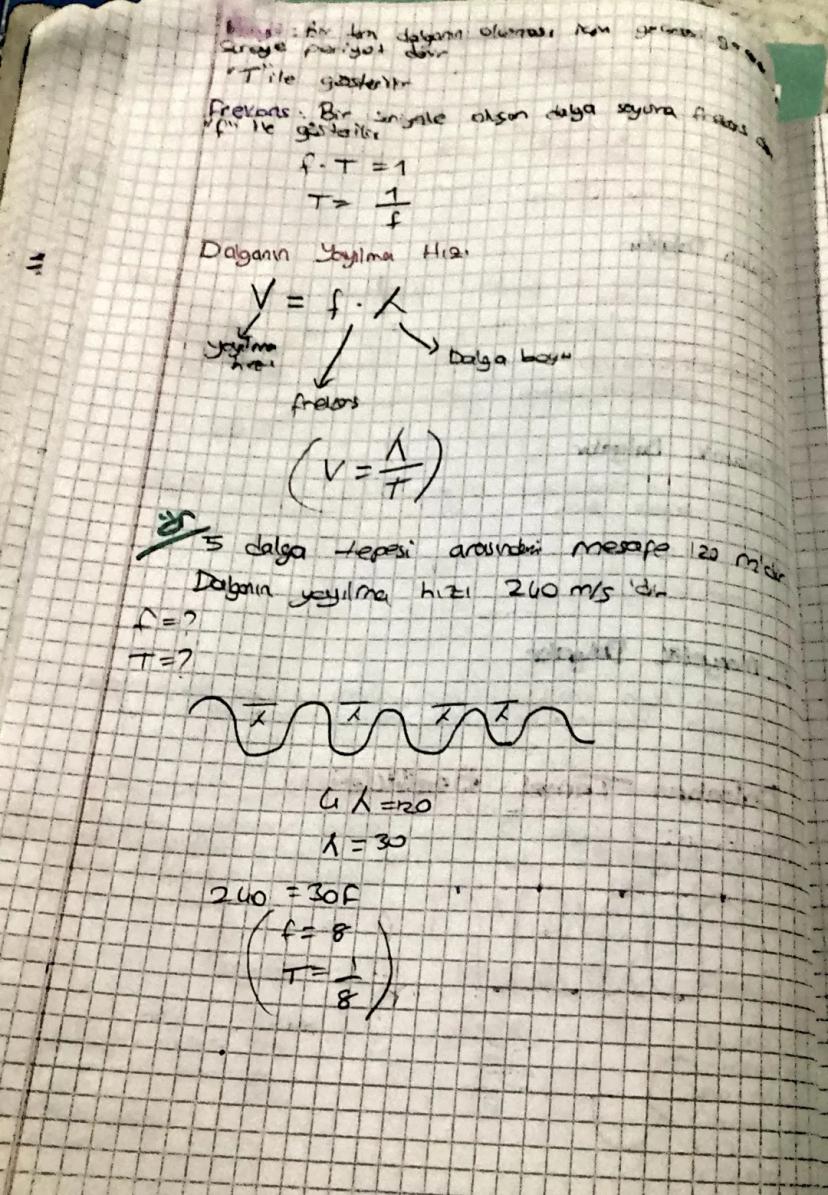 : Bir tam dalganın oluşması için geçmesi
süreye periyot denir
"T" ile gösterilir
Frekans: Bir saniyede oluşan dalga sayısına frekans
"f" ile gösterilir
f . T = 1
T = 1/f
Dalganın Yayılma Hızı
V = f . λ
yayılma hızı
Dalga boyu
frekans
(V = λ/T)
5 dalga tepesi arasındaki mesafe 120 m'dir
Dalganın yayılma hızı 240 m/s 'dir
f = ?
T = ?
λ λ λ λ
4 λ = 120
λ = 30
240 = 30f
f = 8
T = 1/8